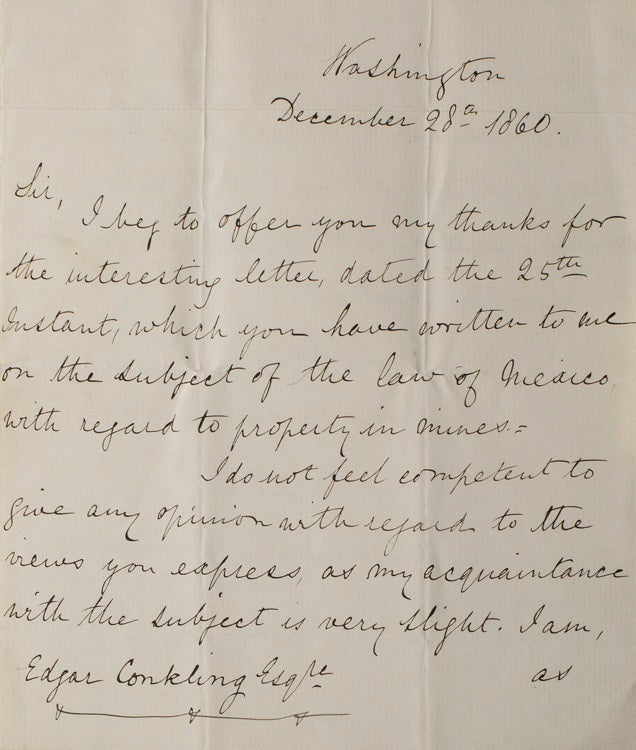 Washington
December 28th 1860.
Sir,
I beg to offer you my thanks for
the interesting letter, dated the 25th
Instant, which you have written to me
on the subject of the law of Mexico,
with regard to property in mines.=
I do not feel competent to
give any opinion with regard to the
views you express, as my acquaintance
with the subject is very slight. I am,
Edgar Conkling Esqre as